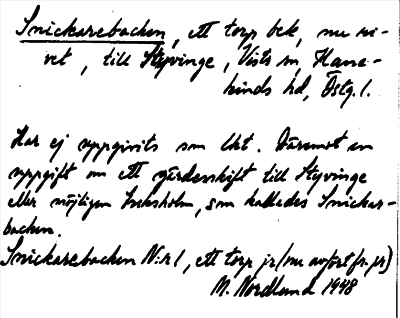 Snickarebacken, ett torp bek, nu ri-
vet, till Styvinge, Vists sn, Hane-
kinds hd, Östg. l.
Har ej uppgivits som lht. Däremot en
uppgift om ett gärdesskift till Styvinge
eller möjligen Sturefors, som kallades Snickar-
backen.
Snickarebacken N:r 1, ett torp jr (nu avfört fr. jr)
M. Nordlund 1948